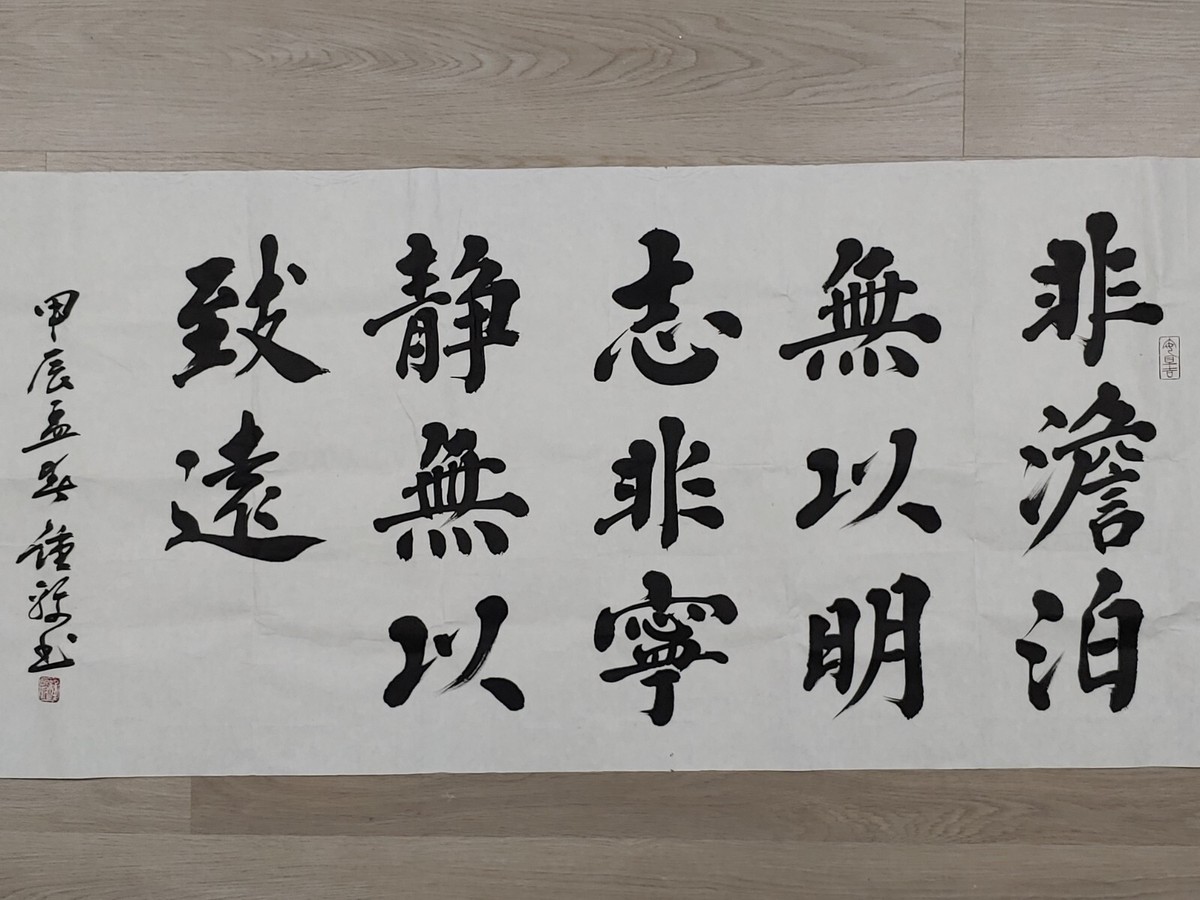 非澹泊
無以明
志非寧
靜無以
致遠
甲辰孟春鍾毅书